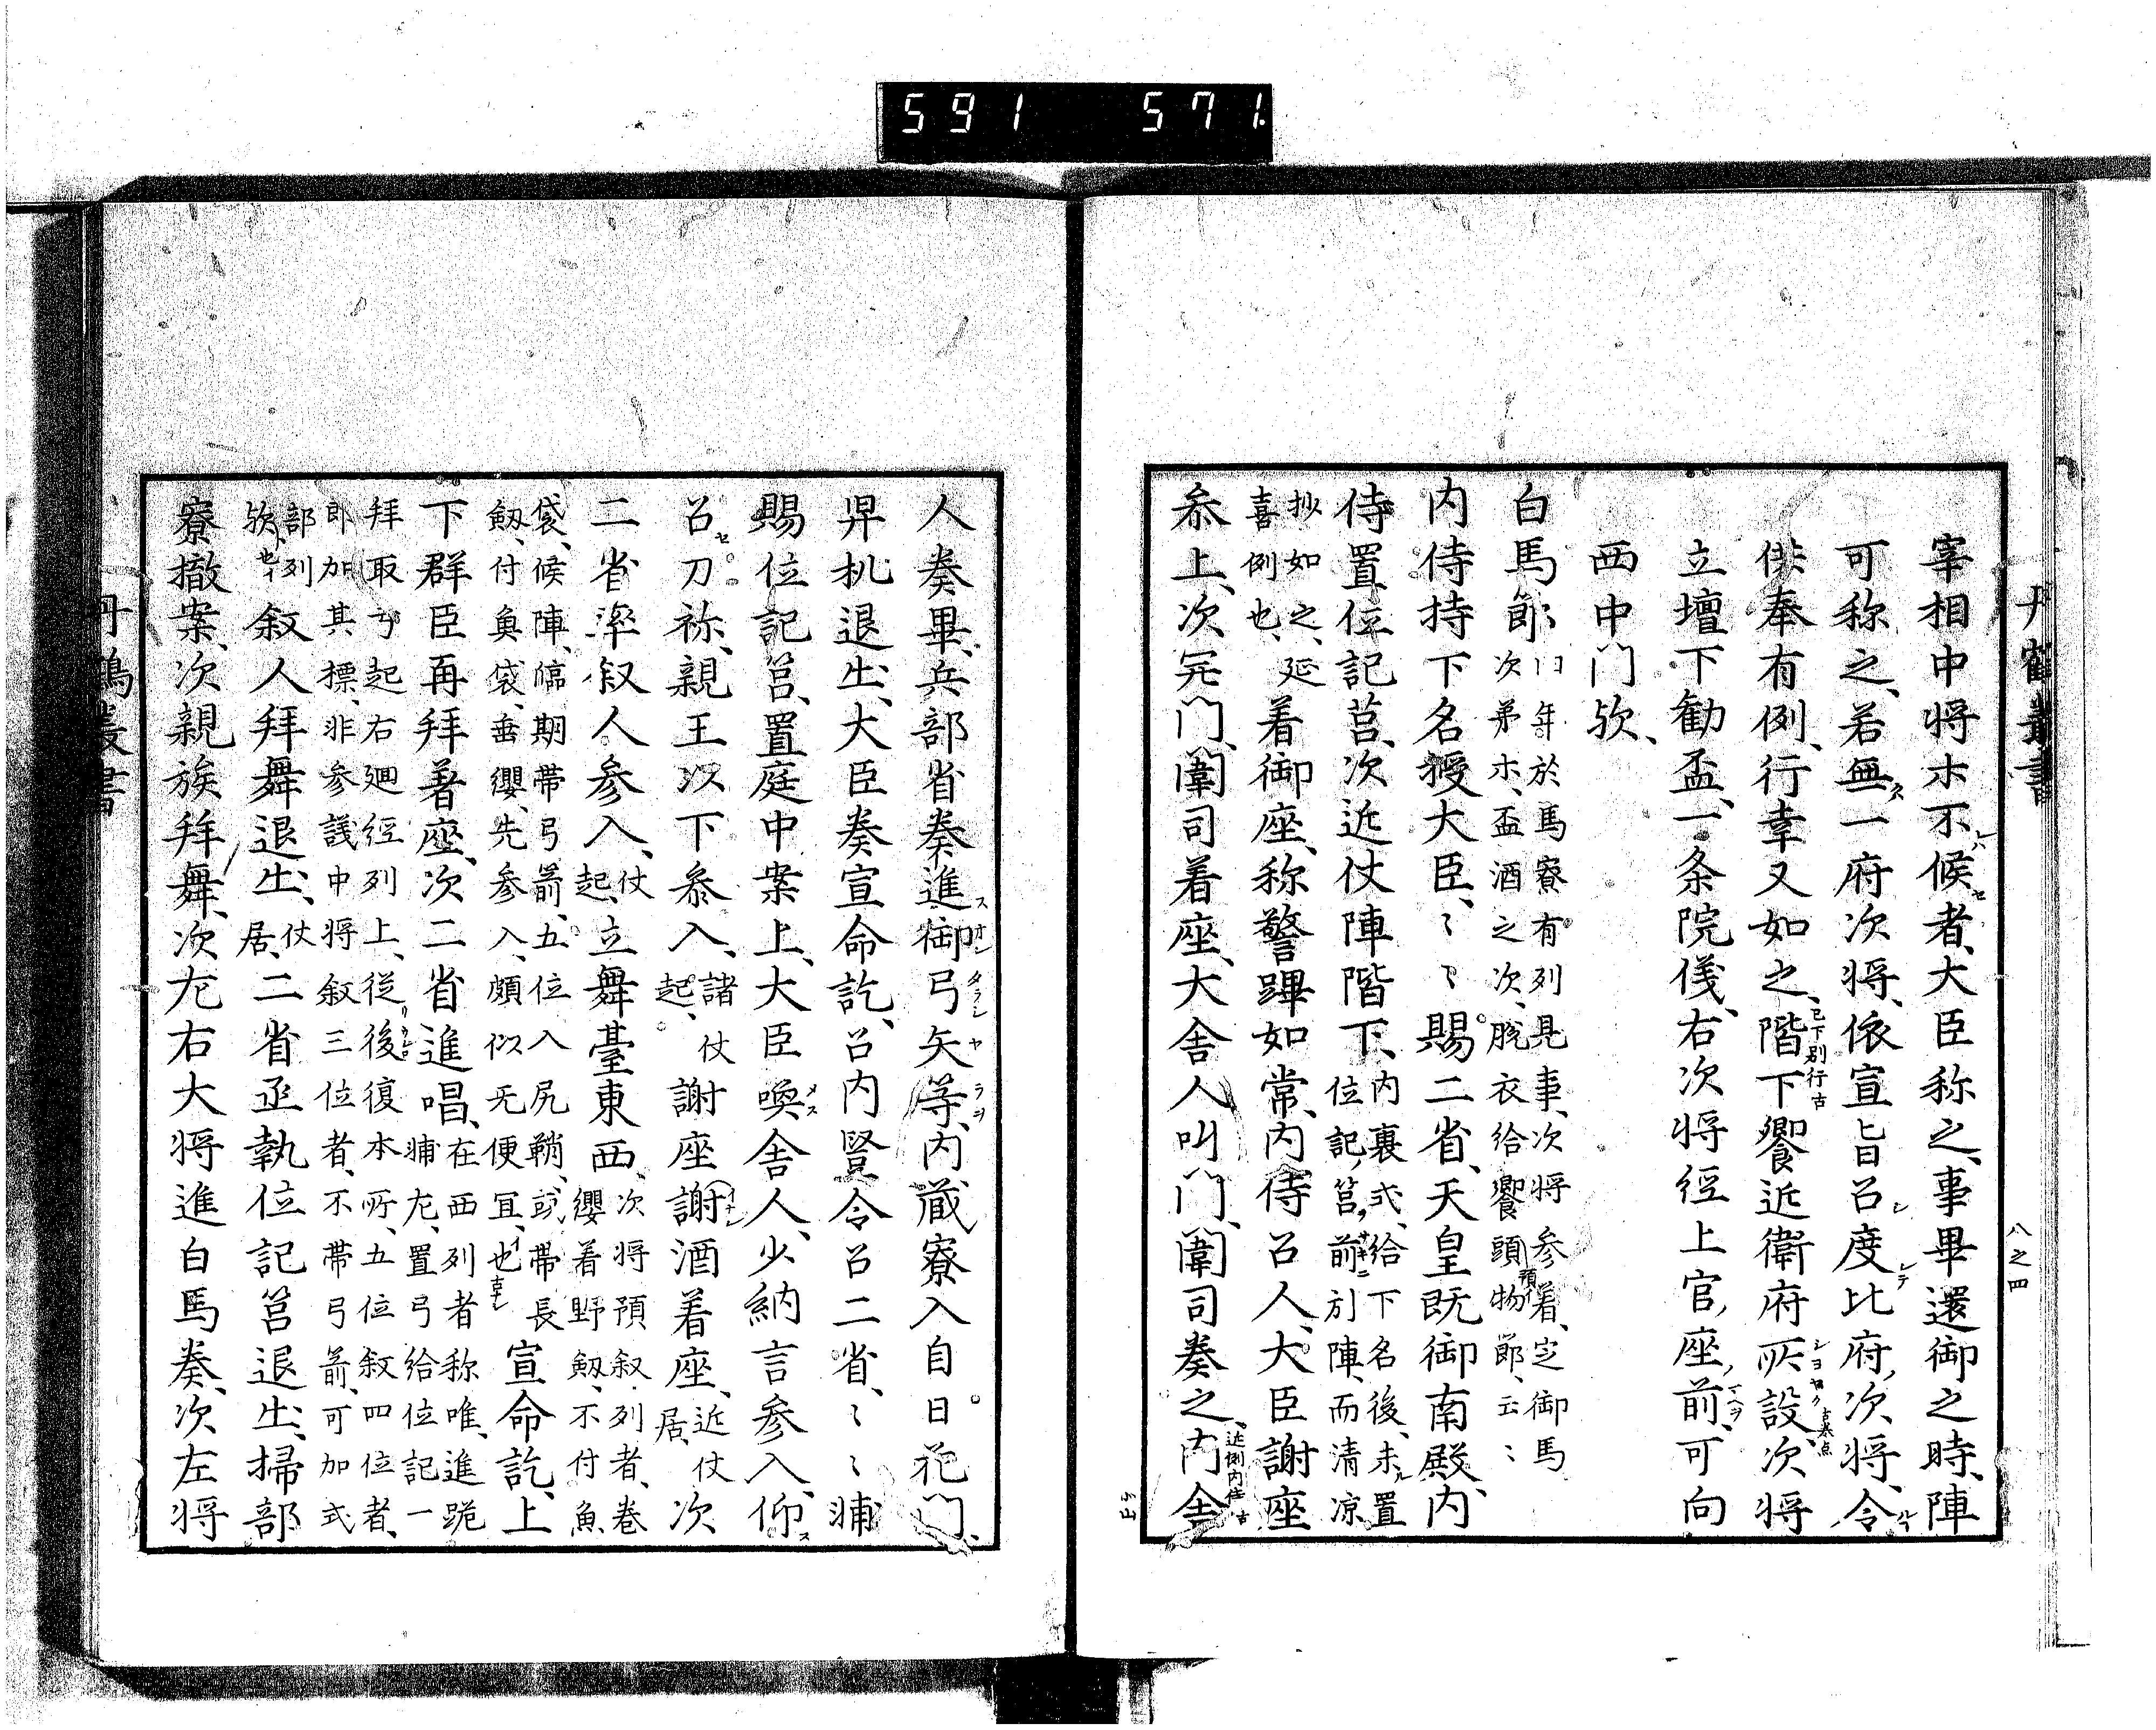 591 571
丹鶴叢書
八之四
宰相中将木不候者、大臣称之、事畢還御之時、陣
可称之、若無一府次将、依宣旨召度比府次将、令
供奉有例、行幸又如之、階下饗近衛府所設、次将
已下別行古
立壇下勧盃、一条院儀、右次将経上官座前、可向
西中门欤、
白馬節
口年於馬寮有列見事、次将参着、定御馬
次第木、盃酒之次、脱衣給饗頭物節、云〻
内侍持下名授大臣、〻〻賜二省、天皇既御南殿、内
侍置位記筥、次近仗陣階下、
内裏式、給下名後、未置
位記筥前引陣、而清凉
抄如之、延
喜例也、
着御座、称警蹕如常、内侍召人、大臣謝座
参上、次開门、闈司着座、大舎人叫门、闈司奏之、内舎
人奏畢、兵部省奏進御弓矢等、内蔵寮入自日花门、
舁机退出、大臣奏宣命訖、召内豎令召二省、〻〻輔
賜位記筥、置庭中案上、大臣喚舎人、少納言参入、仰
召刀祢、親王以下参入、
諸仗
起、
謝座謝酒着座、
近仗
居、
次
二省率叙人参入、
仗
起、
立舞臺東西、
次将預叙列者、巻
纓着野劔、不付魚
袋、候陣、傜期帯弓箭、五位入尻鞘、或帯長
劔、付魚袋、垂纓、先参入、頗似无便宜、也
宣命訖、上
下群臣再拜著座、次二省進唱、
在西列者称唯、進跪
輔左、置弓給位記一
拜取弓起右廻経列上、従後復本所、五位叙四位者、
即加其標、非参議中将叙三位者、不帯弓箭、可加式
部列
欤、
叙人拜舞退出、
仗
居、
二省丞執位記筥退出、掃部
寮撤案、次親族拜舞、次左右大将進白馬奏、次左将
丹鶴叢書